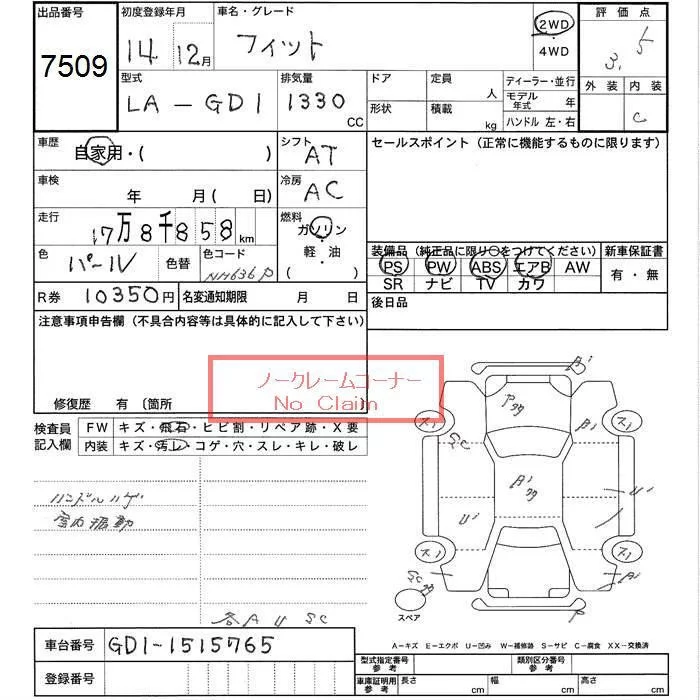 出品番号
7509
初度登録年月
14年 12月
車名・グレード
フィット
2WD
・
4WD
評価点
3.5
外装 内装
C
型式
LA-GD1
排気量
1330
CC
ドア
形状
定員 人
積載 kg
ディーラー・並行
モデル年式 年
ハンドル 左・右
車歴
自家用・( )
シフト
AT
セールスポイント (正常に機能するものに限ります)
車検
年 月( 日)
冷房
AC
走行
17万8千858km
燃料
ガソリン
・
軽・油
( )
色
パール
色替
色コード
NH636P
R券 10350円
名変通知期限 月 日
装備品 (純正品に限り○をつけてください)
PS PW ABS エアB AW
SR ナビ TV カワ
新車保証書
有・無
後日品
注意事項申告欄 (不具合内容等は具体的に記入して下さい)
ノークレームコーナー
No Claim
修復歴 有 〔箇所
検査員記入欄
FW キズ・飛石・ヒビ割・リペア跡・X要
内装 キズ・汚レ・コゲ・穴・スレ・キレ・破レ
ハンドルハゲ
各A U SC
スペア
A-キズ E-エクボ U-凹み W-補修跡 S-サビ C-腐食 XX-交換済
車台番号 GD1-1515765
登録番号
型式指定番号参考
類別区分番号参考
車庫証明用参考
長さ cm 幅 cm 高さ cm